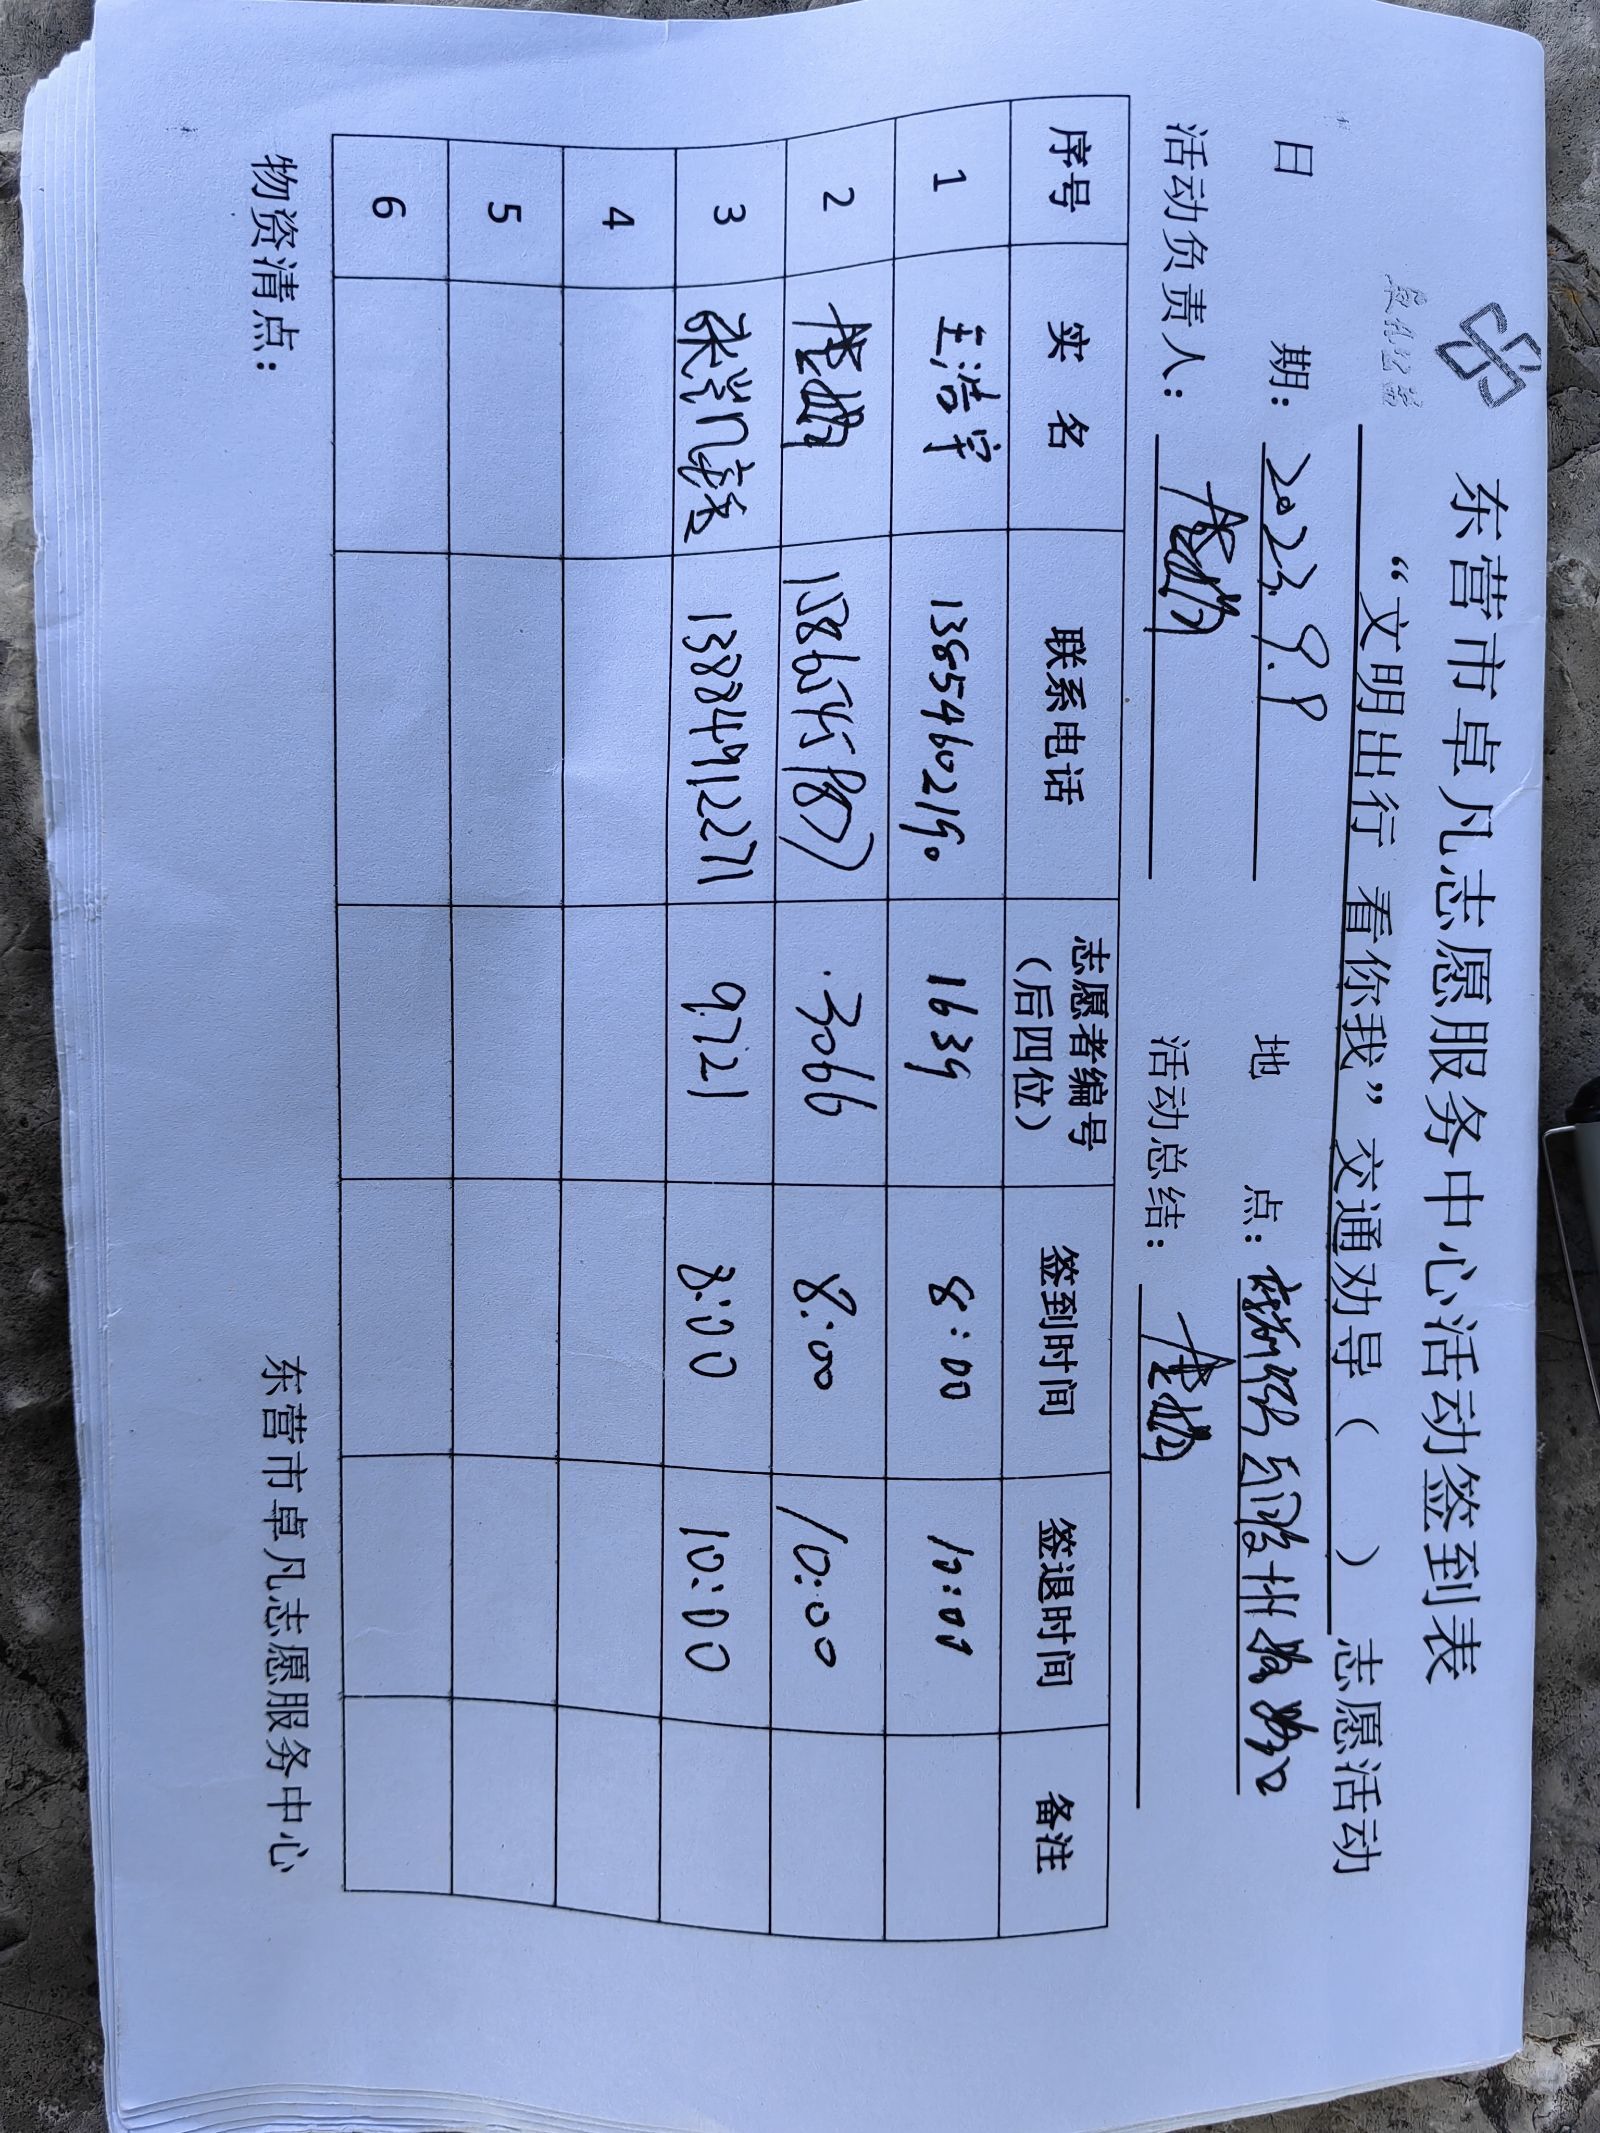 东营市卓凡志愿服务中心活动签到表
“文明出行 看你我”交通劝导（ ）志愿活动
日 期：2023.9.9 地 点：
活动负责人： 活动总结：
序号 实 名 联系电话 志愿者编号（后四位） 签到时间 签退时间 备注
1 王浩宇 1639 8:00 10:00
2 3066 8:00 10:00
3 13884912271 9721 8:00 10:00
4
5
6
物资清点：
东营市卓凡志愿服务中心